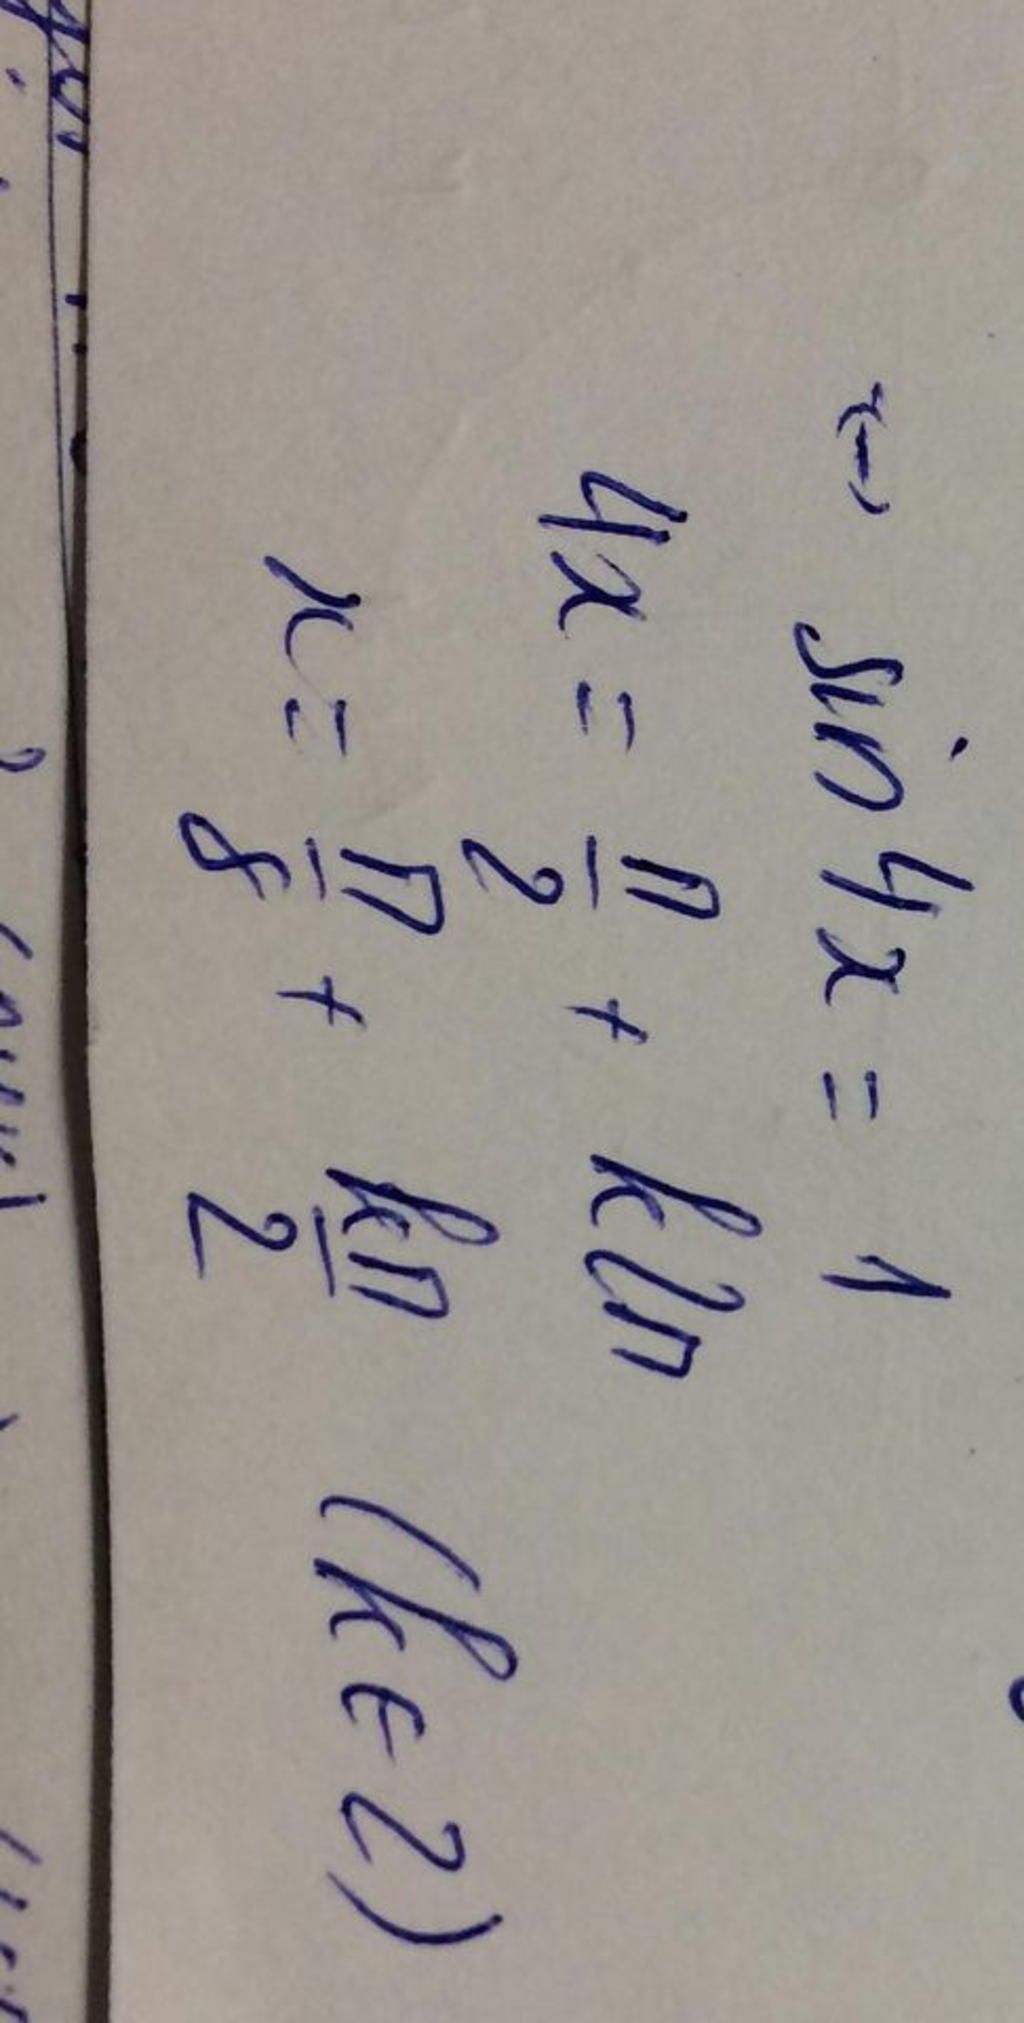 ↔ sin 4x = 1
4x = π/2 + k2π
x = π/8 + kπ/2 (k ∈ Z)